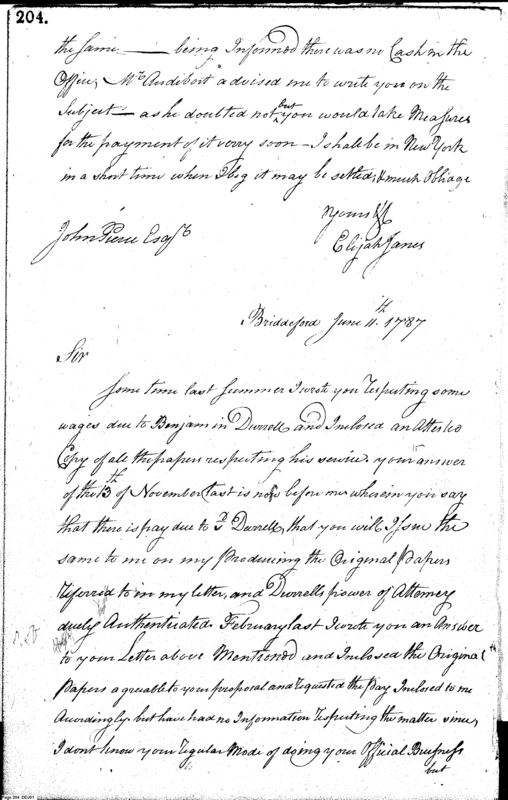 204.
the same — being Informed there was no Cash in the
Office, Mr. Audibert advised me to write you on the
Subject — as he doubted not but you would take Measures
for the payment of it verry soon — I shall be in New York
in a short time when I beg it may be settled; & much Obliage
Yours &c
John Pierce Esqr.
Elijah Janes
Briddeford June 11.th 1787
Sir
Some time last Summer I wrote you respecting some
wages due to Benjamin Durrell and Inclosed an Attested
Copy of all the papers respecting his service. your answer
of the 13th of November last is now before me wherein you say
that there is pay due to sd. Durrell, that you will Issue the
same to me on my Producing the Original Papers
referred to in my letter, and Durrells power of Attorney
duely Authenticated. February last I wrote you an Answer
to your Letter above Mentioned and Inclosed the Original
Papers agreable to your proposal and requested the Pay Inclosed to me
Accordingly but have had no Information respecting the matter since,
I dont know your regular Mode of doing your Official Business
but